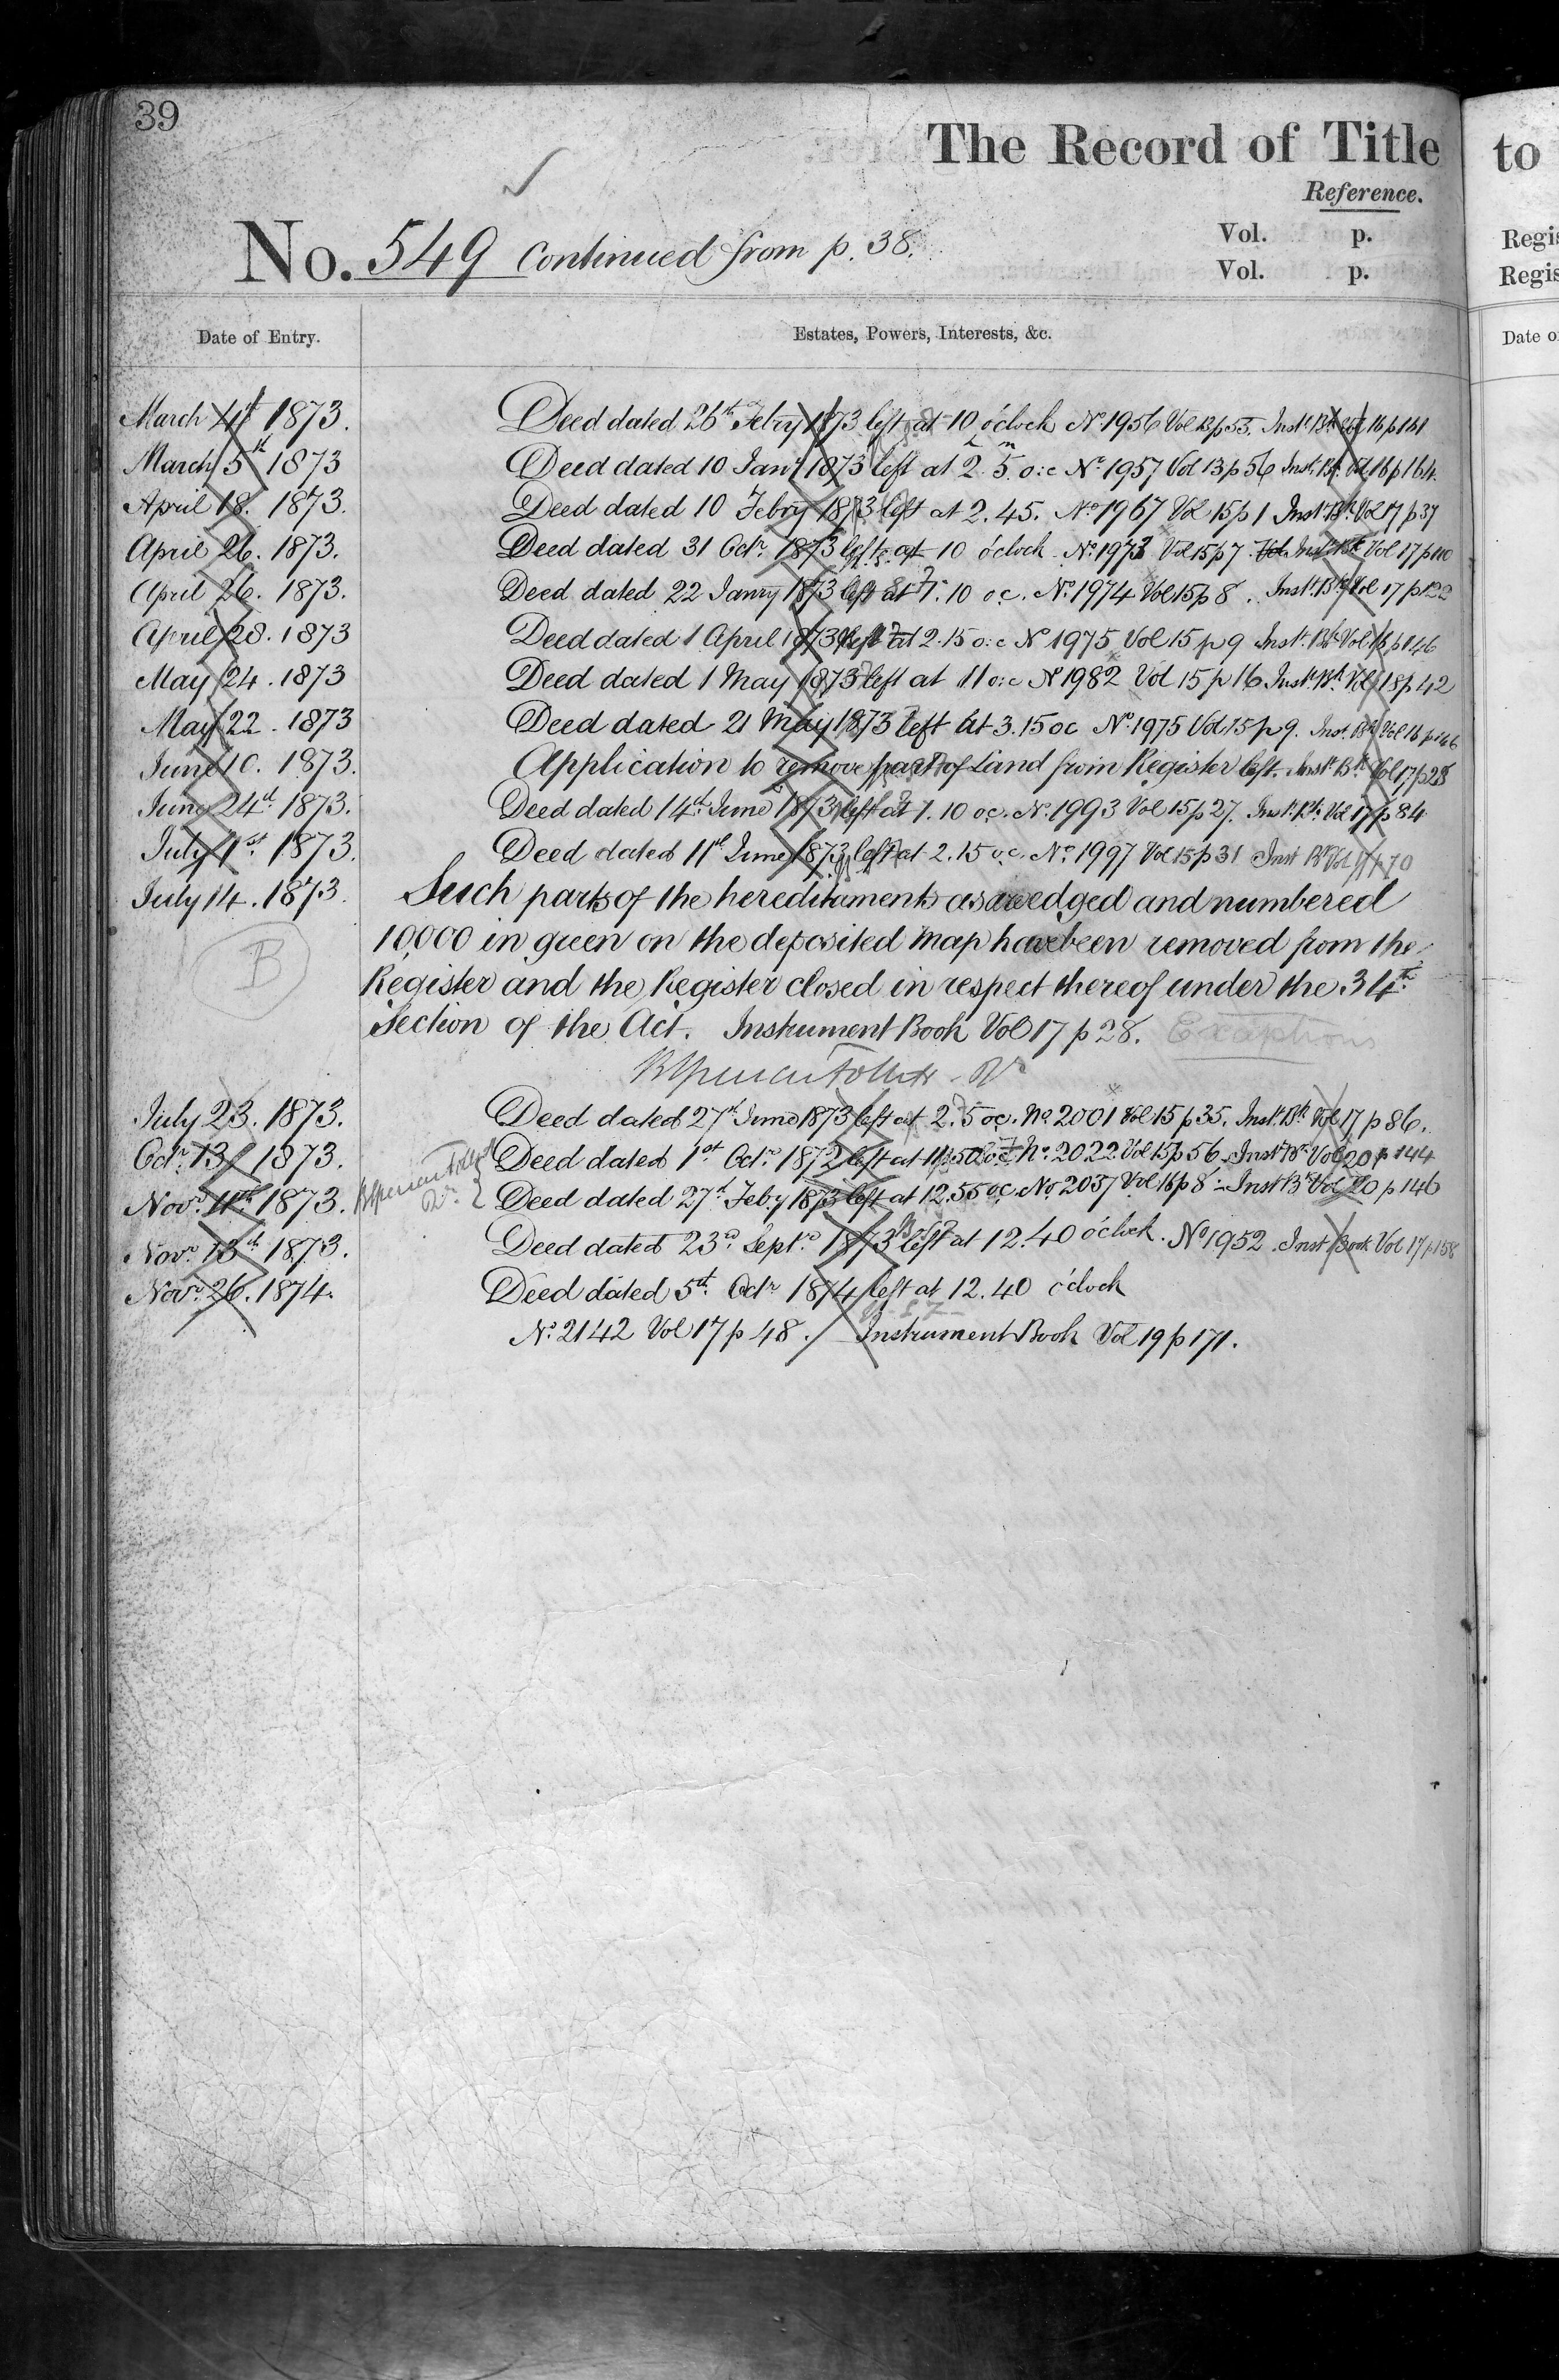 39
The Record of Title
to
Reference.
No. 549 Continued from p. 38.
Vol. p.
Regis
Vol. p.
Regis
Date of Entry.
Estates, Powers, Interests, &c.
Date o
March 4th 1873. Deed dated 26th Febry 1873 left at 10 o'clock No. 1956 Vol 13 p 53. Inst. Bk Vol 16 p 161
March 5th 1873 Deed dated 10 Jany 1873 left at 2. 5. o:c No. 1957 Vol 13 p 56 Inst. Bk. Vol 16 p 164.
April 18. 1873. Deed dated 10 Febry 1873 left at 2. 45. No. 1967 Vol 15 p 1 Inst. Bk. Vol 17 p 37
April 26. 1873. Deed dated 31 Octr. 1873 left at 10 o'clock No. 1973 Vol 15 p 7. Vol. Inst. Bk Vol 17 p 110
April 26. 1873. Deed dated 22 Janry 1873 left at 1. 10 oc. No. 1974 Vol 15 p 8. Inst. Bk Vol 17 p 122
April 28. 1873 Deed dated 1 April 1873 left at 2. 15 o:c No 1975 Vol 15 p 9 Inst. Bk Vol 16 p 146
May 24. 1873 Deed dated 1 May 1873 left at 11 o:c No 1982 Vol 15 p 16 Inst. Bk. Vol 18 p 42
May 22. 1873 Deed dated 21 May 1873 left at 3. 15 oc No. 1975 Vol 15 p 9. Inst. Bk Vol 16 p 146
June 10. 1873. Application to remove part of Land from Register left. Inst. Bk Vol 17 p 28
June 24th. 1873. Deed dated 14th June 1873 left at 1. 10 oc. No. 1993 Vol 15 p 27. Inst. Bk. Vol 17 p 84
July 1st. 1873. Deed dated 11th June 1873 left at 2. 15 o.c. No. 1997 Vol 15 p 31 Inst Bk Vol 17 p 70
July 14. 1873. Such parts of the hereditaments as are edged and numbered
10,000 in green on the deposited Map have been removed from the
B
Register and the Register closed in respect thereof under the 34th.
Section of the Act. Instrument Book Vol 17 p 28. Exceptions
July 23. 1873. Deed dated 27th June 1873 left at 2. 5 oc. No. 2001 Vol 15 p 35. Inst. Bk. Vol 17 p 86.
Octr. 13. 1873. Deed dated 1st Octr. 1872 left at 11. 50 oc No. 2022 Vol 15 p 56. Inst Bk Vol 20 p 144
Novr. 11th 1873. Deed dated 27th Feby 1873 left at 12. 55 oc. No. 2037 Vol 16 p 8. Inst Bk Vol 20 p 146
Novr. 13th 1873. Deed dated 23rd. Septr. 1873 left at 12. 40 o'clock. No 1952. Inst Book Vol 17 p 158
Novr. 26. 1874. Deed dated 5th. Octr 1874 left at 12. 40 o'clock
No. 2142 Vol 17 p 48. Instrument Book Vol 19 p 171.